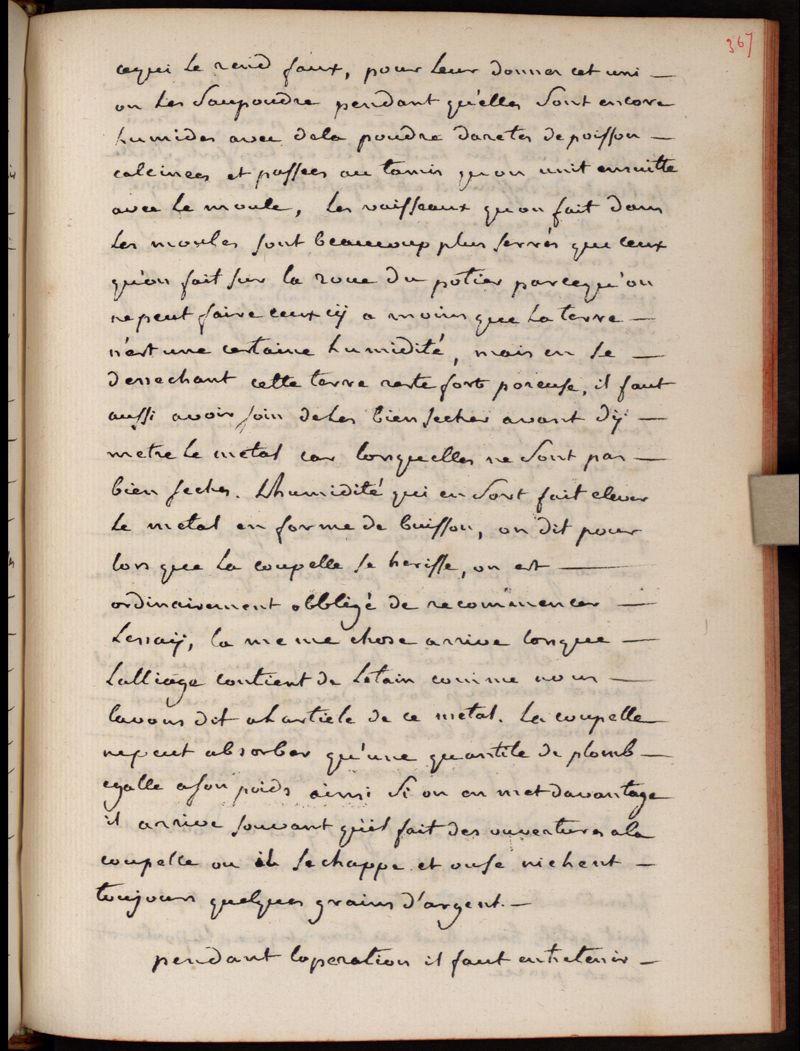 367
cequi le rend faux, pour leur donner cet uni —
on les Saupoudre pendant qu'elles Sont encore
humides avec dela poudre daretes de poisson —
calcinees et passees au tamis qu'on unit ensuitte
avec le moule, les vaisseaux qu'on fait dans
les moules sont beaucoup plus serrés que ceux
qu'on fait sur la roue du potier parcequ'on
ne peut faire ceux cÿ a moins que la terre —
n'ait une certaine humidité, mais en se —
dessechant cette terre reste fort poreuse, il faut
aussi avoir soin deles bien secher avant dÿ —
metre le metal car lorsquelles ne Sont pas —
bien seches. Lhumidité qui en Sort fait elever
le metal en forme de buisson, on dit pour
lors que la coupelle se herisse, on est —
ordinairement obbligé de recommencer —
Lessaÿ, la meme chose arrive lorsque —
Lalliage contient de Letain comme nous —
lavons dit a Larticle de ce metal. La coupelle
ne peut absorber qu'une quantite de plomb —
egalle a son poids ainsi Si on en met davantage
il arrive souvant qu'il fait des ouvertures a la
coupelle ou il sechappe et ou se nichent —
toujours quelques grains d'argent. —
pendant loperation il faut entretenir —